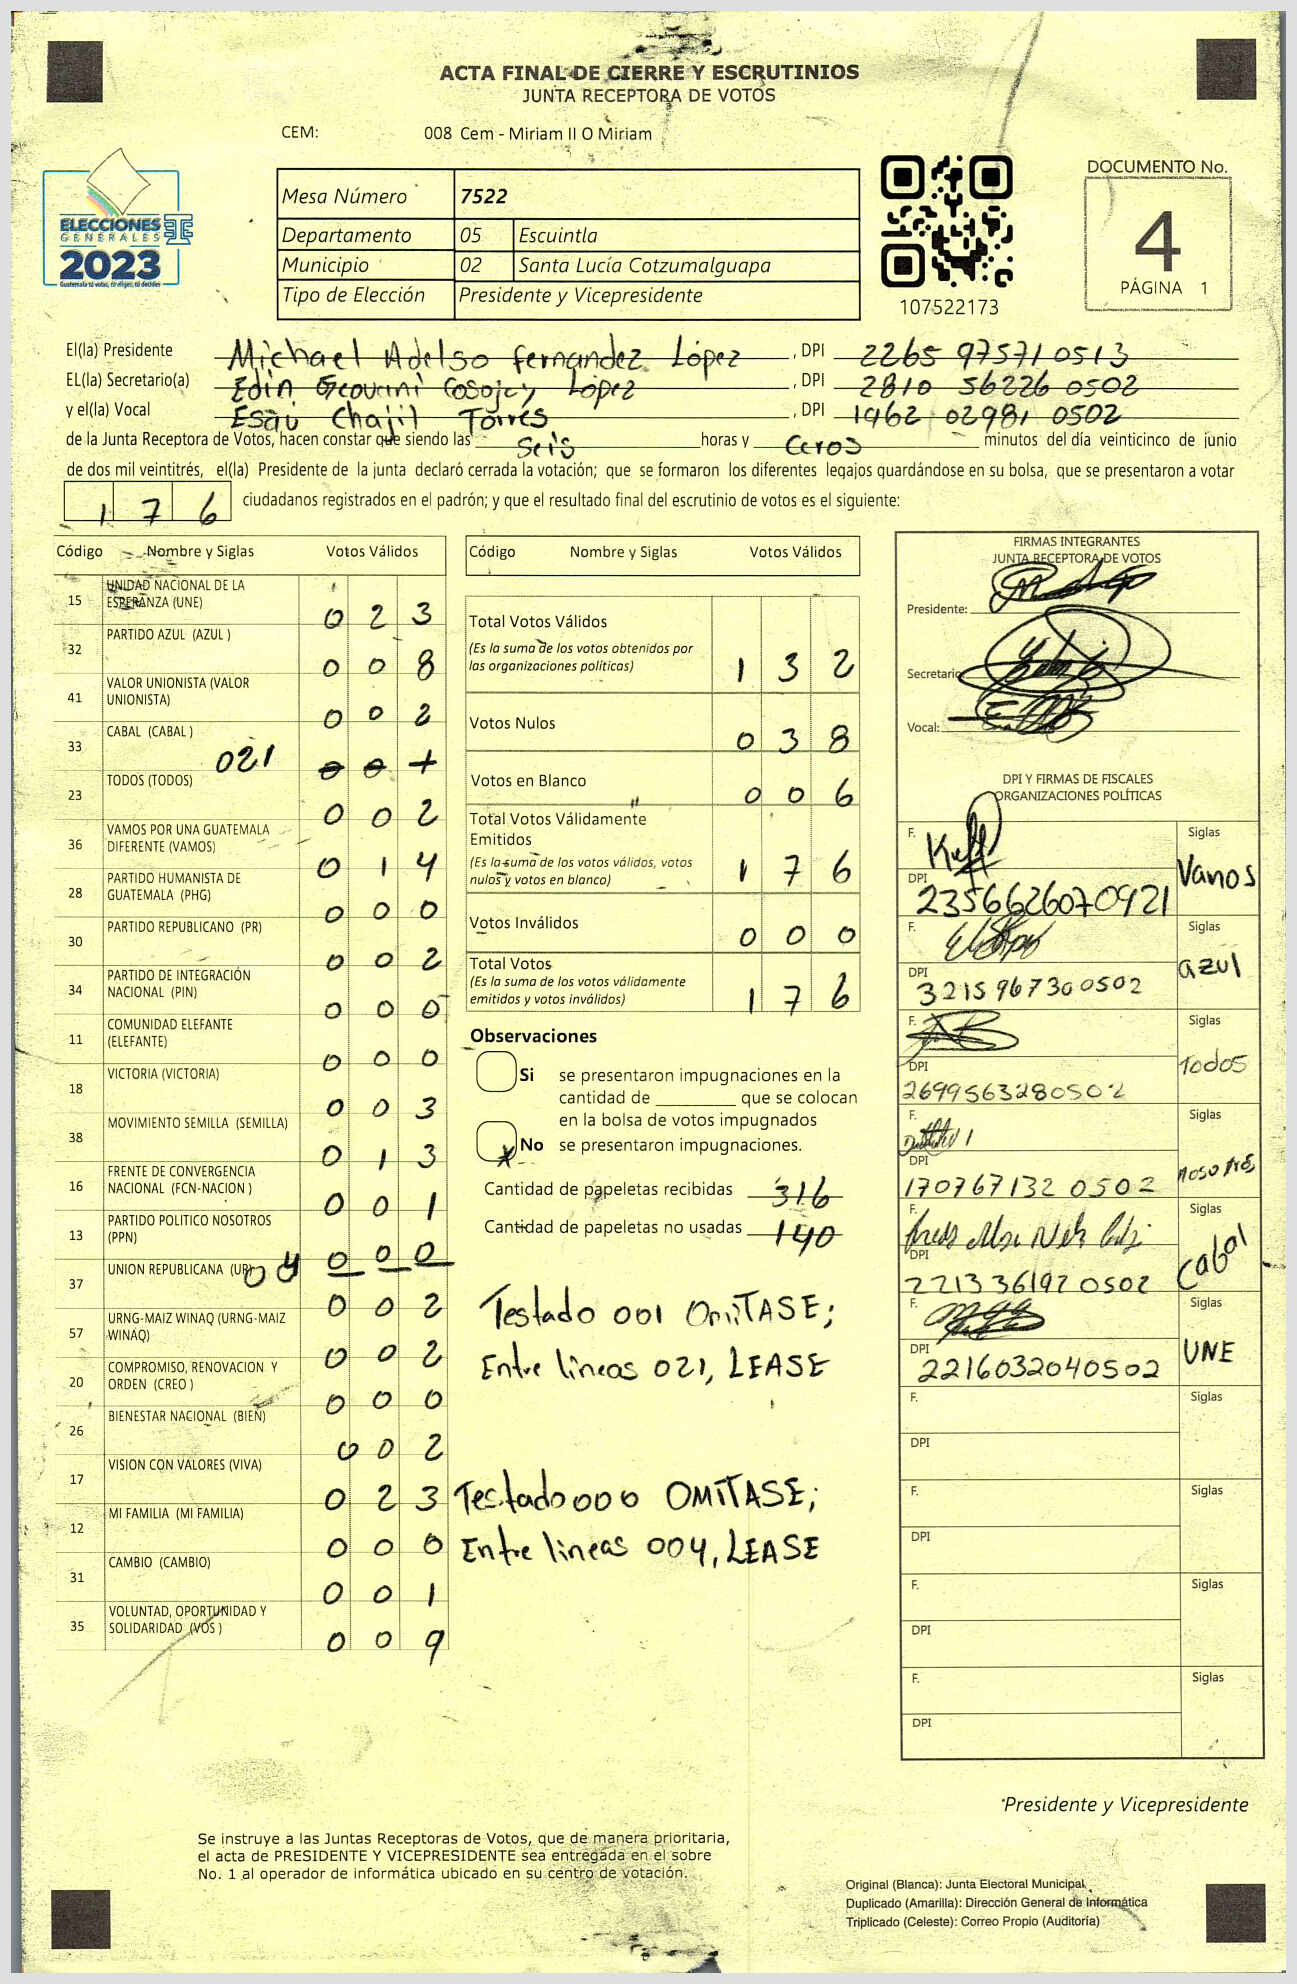 ACTA FINAL DE CIERRE Y ESCRUTINIOS
JUNTA RECEPTORA DE VOTOS
CEM: 008 Cem - Miriam II O Miriam
ELECCIONES
GENERALES
2023
Guatemala tú votas, tú eliges, tú decides
Mesa Número 7522
Departamento 05 Escuintla
Municipio 02 Santa Lucía Cotzumalguapa
Tipo de Elección Presidente y Vicepresidente
107522173
DOCUMENTO No.
4
PÁGINA 1
El(la) Presidente Michael Adelso fernandez López , DPI 2265 97571 0513
EL(la) Secretario(a) Edin Geovani Cosojay López , DPI 2810 56226 0502
y el(la) Vocal Esaú Chajil Torres , DPI 1962 02981 0502
de la Junta Receptora de Votos, hacen constar que siendo las seis horas y ceros minutos del día veinticinco de junio
de dos mil veintitrés, el(la) Presidente de la junta declaró cerrada la votación; que se formaron los diferentes legajos guardándose en su bolsa, que se presentaron a votar
176 ciudadanos registrados en el padrón; y que el resultado final del escrutinio de votos es el siguiente:
Código Nombre y Siglas Votos Válidos
15 UNIDAD NACIONAL DE LA ESPERANZA (UNE) 0 2 3
32 PARTIDO AZUL (AZUL ) 0 0 8
41 VALOR UNIONISTA (VALOR UNIONISTA) 0 0 2
33 CABAL (CABAL ) 021 0 0 1
23 TODOS (TODOS) 0 0 2
36 VAMOS POR UNA GUATEMALA DIFERENTE (VAMOS) 0 1 4
28 PARTIDO HUMANISTA DE GUATEMALA (PHG) 0 0 0
30 PARTIDO REPUBLICANO (PR) 0 0 2
34 PARTIDO DE INTEGRACIÓN NACIONAL (PIN) 0 0 0
11 COMUNIDAD ELEFANTE (ELEFANTE) 0 0 0
18 VICTORIA (VICTORIA) 0 0 3
38 MOVIMIENTO SEMILLA (SEMILLA) 0 1 3
16 FRENTE DE CONVERGENCIA NACIONAL (FCN-NACION ) 0 0 1
13 PARTIDO POLITICO NOSOTROS (PPN) 04 0 0 0
37 UNION REPUBLICANA (UR) 0 0 2
57 URNG-MAIZ WINAQ (URNG-MAIZ WINAQ) 0 0 2
20 COMPROMISO, RENOVACION Y ORDEN (CREO ) 0 0 0
26 BIENESTAR NACIONAL (BIEN) 0 0 2
17 VISION CON VALORES (VIVA) 0 2 3
12 MI FAMILIA (MI FAMILIA) 0 0 0
31 CAMBIO (CAMBIO) 0 0 1
35 VOLUNTAD, OPORTUNIDAD Y SOLIDARIDAD (VOS ) 0 0 9
Código Nombre y Siglas Votos Válidos
Total Votos Válidos 1 3 2
(Es la suma de los votos obtenidos por
las organizaciones políticas)
Votos Nulos 0 3 8
Votos en Blanco 0 0 6
Total Votos Válidamente
Emitidos 1 7 6
(Es la suma de los votos válidos, votos
nulos y votos en blanco)
Votos Inválidos 0 0 0
Total Votos 1 7 6
(Es la suma de los votos válidamente
emitidos y votos inválidos)
Observaciones
Si se presentaron impugnaciones en la
cantidad de ________ que se colocan
en la bolsa de votos impugnados
x No se presentaron impugnaciones.
Cantidad de papeletas recibidas 316
Cantidad de papeletas no usadas 140
Testado 001 OmiTASE;
Entre lineas 021, LEASE
Testado 000 OMITASE;
Entre lineas 004, LEASE
FIRMAS INTEGRANTES
JUNTA RECEPTORA DE VOTOS
Presidente:
Secretario:
Vocal:
DPI Y FIRMAS DE FISCALES
ORGANIZACIONES POLÍTICAS
F. Siglas Vamos
DPI 2356626070921
F. Siglas azul
DPI 3215967300502
F. Siglas Todos
DPI 2699563280502
F. Siglas nosotros
DPI 170767132 0502
F. Siglas Cabal
DPI 2213 36192 0502
F. Siglas UNE
DPI 2216032040502
F. Siglas
DPI
F. Siglas
DPI
F. Siglas
DPI
F. Siglas
DPI
Presidente y Vicepresidente
Se instruye a las Juntas Receptoras de Votos, que de manera prioritaria,
el acta de PRESIDENTE Y VICEPRESIDENTE sea entregada en el sobre
No. 1 al operador de informática ubicado en su centro de votación.
Original (Blanca): Junta Electoral Municipal
Duplicado (Amarilla): Dirección General de Informática
Triplicado (Celeste): Correo Propio (Auditoría)